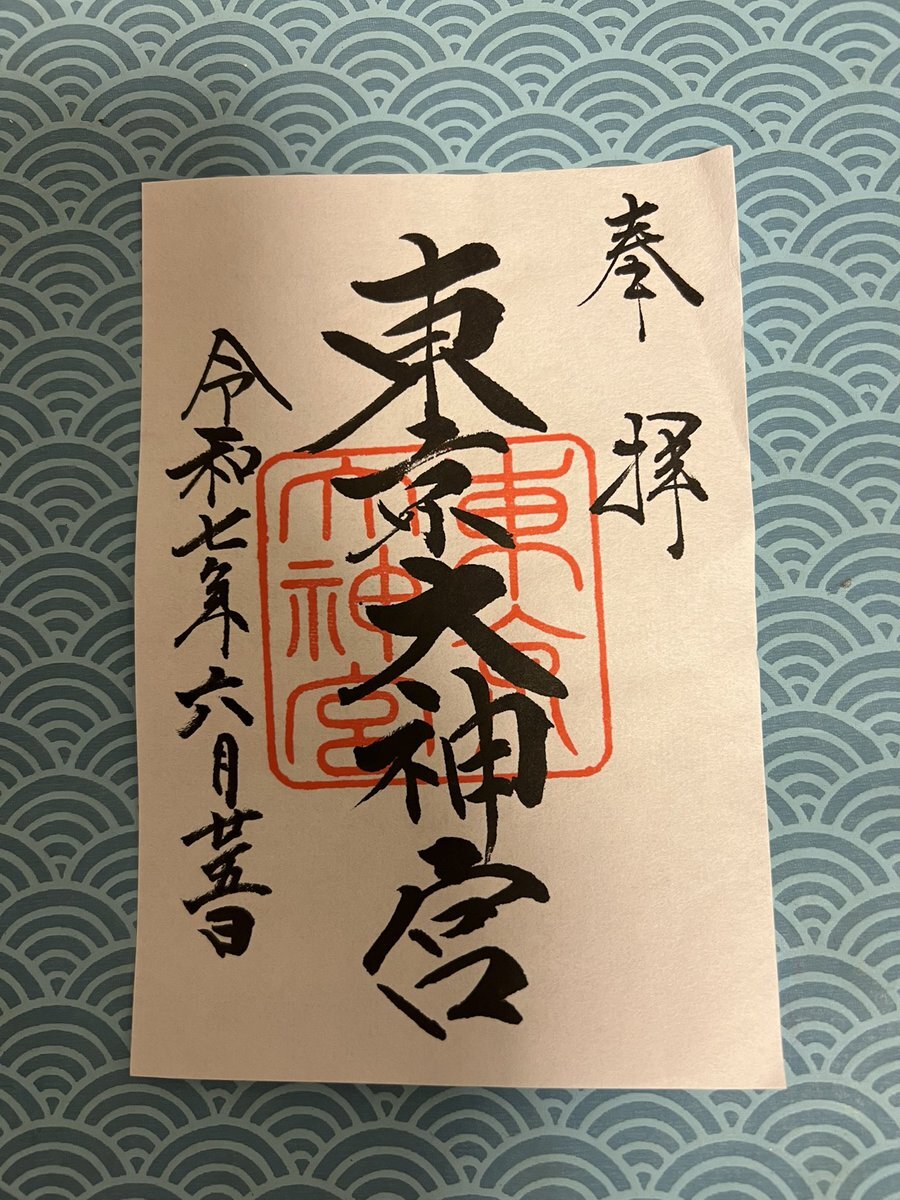 奉拝
東京大神宮
東京
大神宮
令和七年六月廿五日